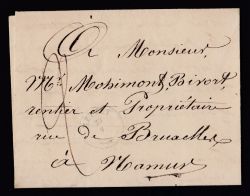 A
Monsieur,
Mr. Mohimont, Bivort,
rentier et Propriétaire
rue de Bruxelles
à Namur